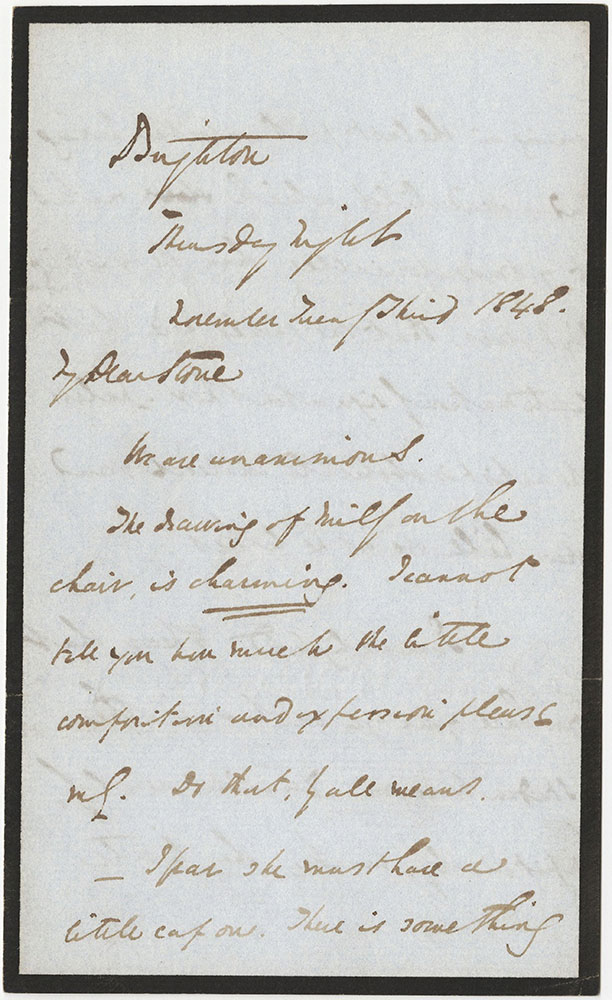 Brighton
Thursday Night
November Twenty Third 1848.
My Dear Stone
We are unanimous.
The drawing of Milly on the
chair, is charming. I cannot
tell you how much the little
composition and expression please
me. Do that, by all means.
— I fear she must have a
little cap on. There is something